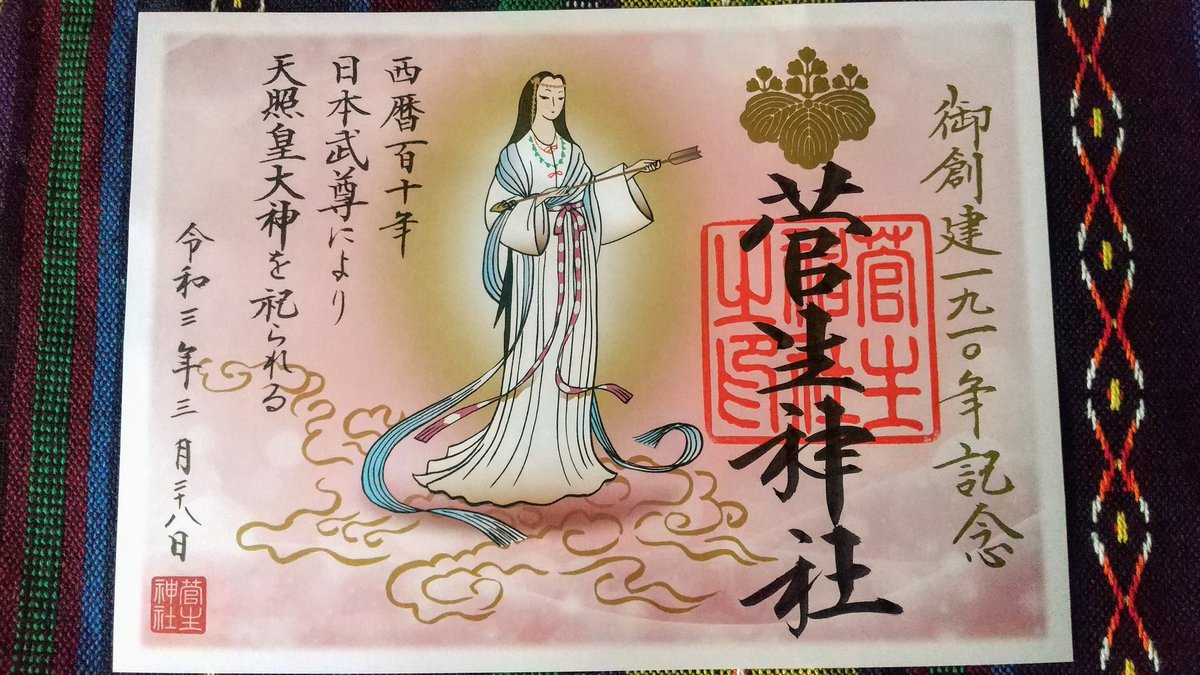 御創建一九一〇年記念
菅生神社
菅生神社之印
西暦百十年
日本武尊により
天照皇大神を祀られる
令和三年三月二十八日
菅生神社